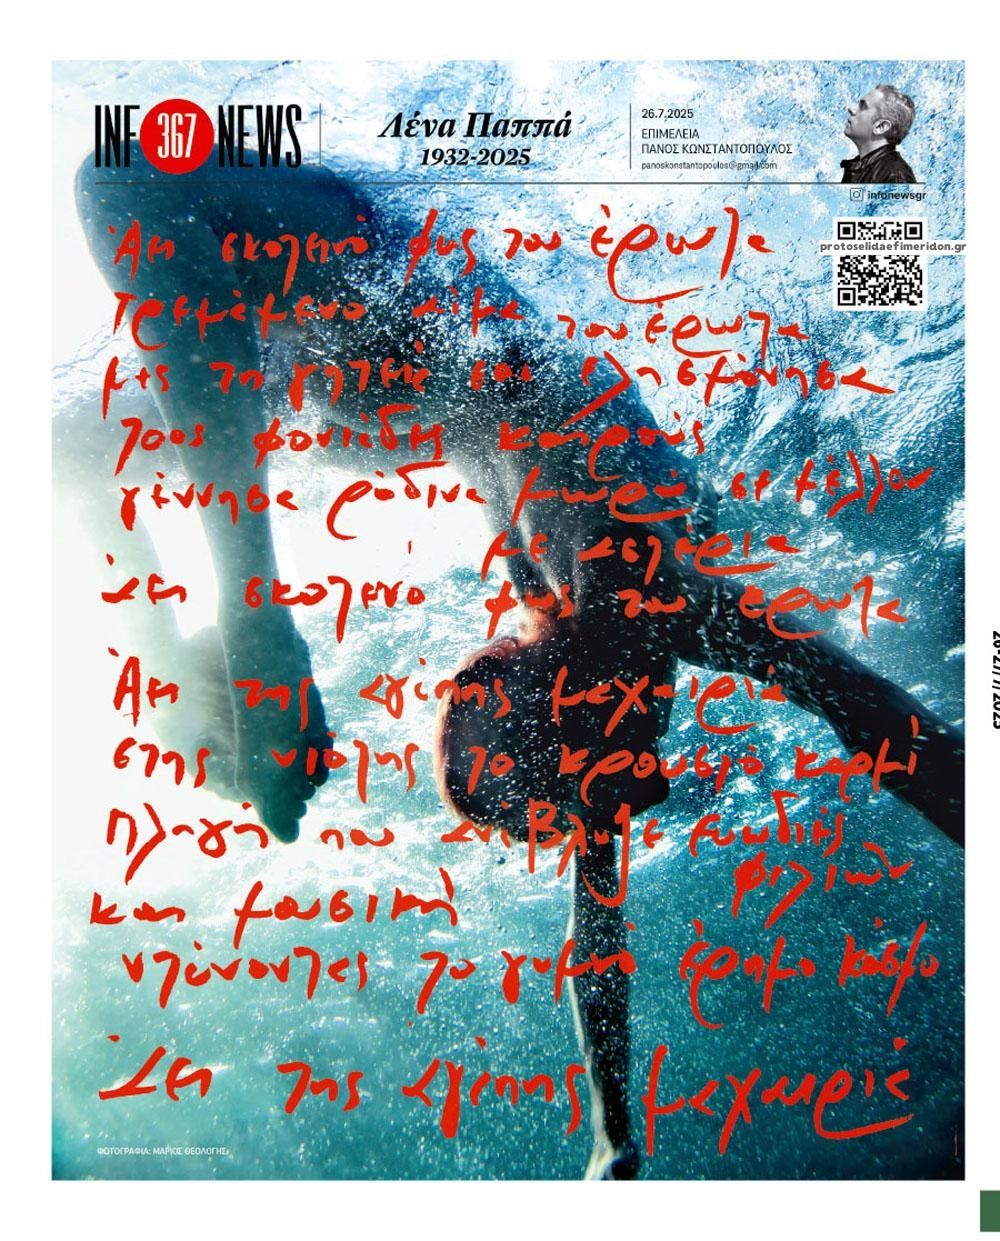 INF 367 NEWS
Λένα Παππά
1932-2025
26.7.2025
ΕΠΙΜΕΛΕΙΑ
ΠΑΝΟΣ ΚΩΝΣΤΑΝΤΟΠΟΥΛΟΣ
panoskonstantopoulos@gmail.com
infonewsgr
protoselidaefimeridon.gr
Άει σκοτεινό φως του έρωτα
τρεμάμενο αίμα του έρωτα
μες τη γητειά σου λησμόνησα
τους φονιάδες καιρούς
γέννησα ρόδινα μωρά σε μέλλον
με
Άει σκοτεινό φως του έρωτα
Άει της αγάπης μαχαιριά
στης νιότης το κρουστό κορμί
πληγή που ανάβλυζε ευωδιές
φιλιών
και μουσική
ντύνοντας το γυμνό έρημο κόσμο
Άει της αγάπης μαχαιριά
ΦΩΤΟΓΡΑΦΙΑ: ΜΑΡΙΟΣ ΘΕΟΛΟΓΗΣ